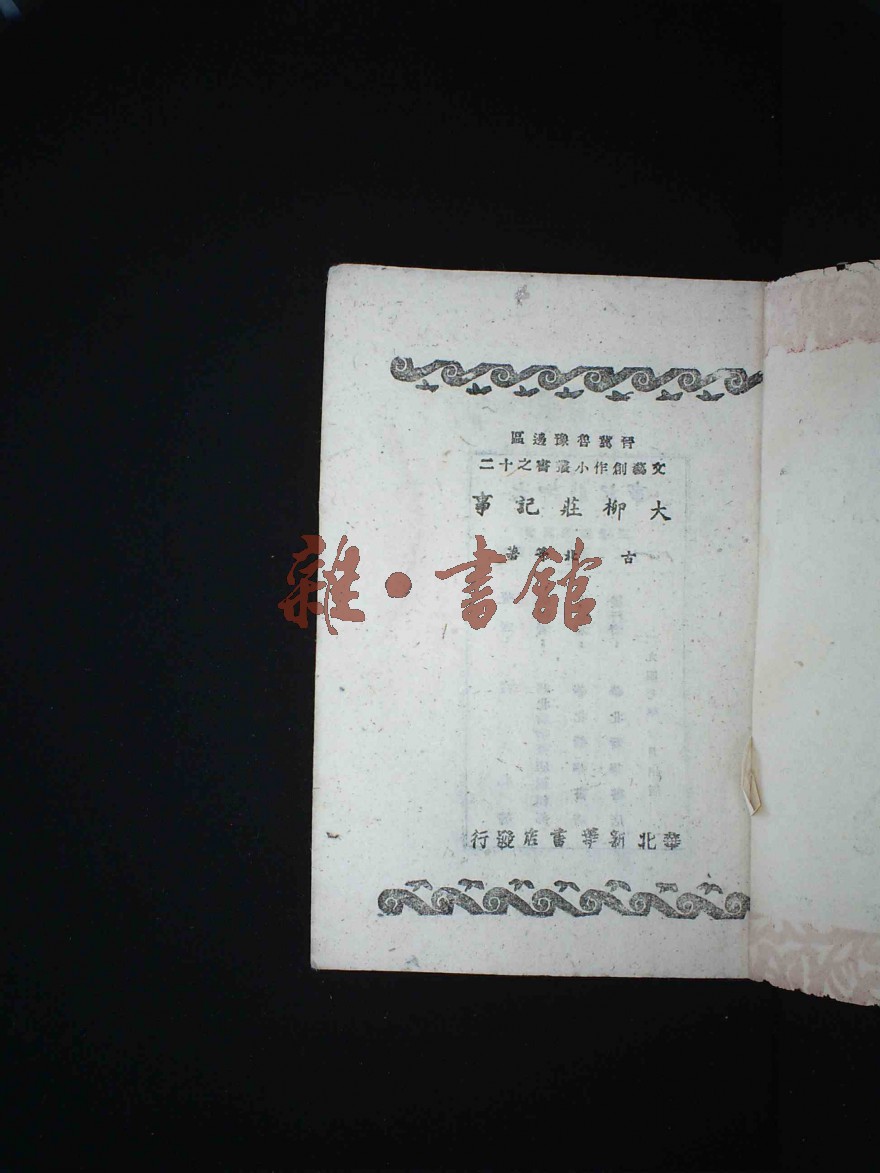 晉冀魯豫邊區
文藝創作小叢書之十二
大柳莊記事
古北等著
雜·書館
華北新華書店發行